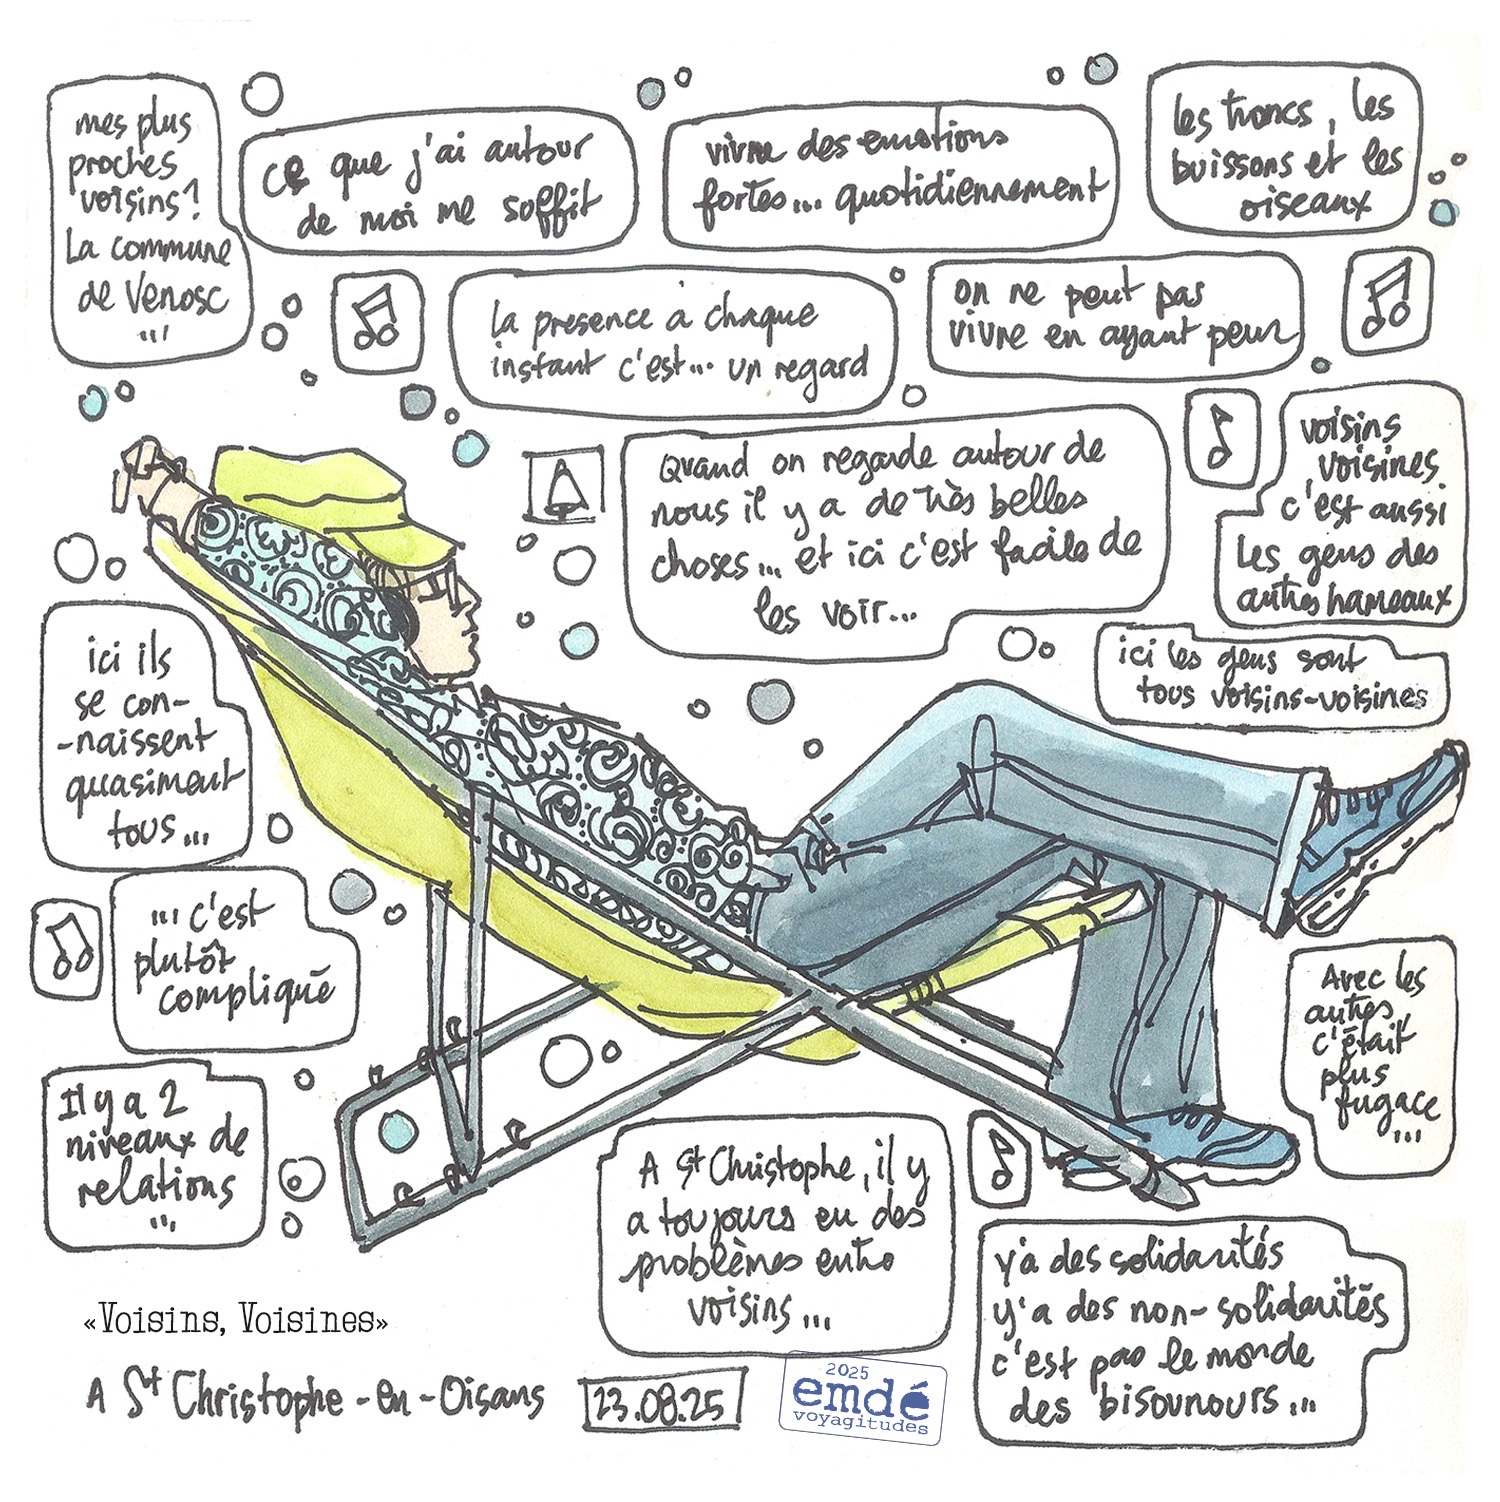 mes plus
proches
voisins?
La commune
de Venosc
...
ce que j'ai autour
de moi me soffit
vivre des emotions
fortes... quotidiennement
les troncs, les
buissons et les
oiseaux
la presence à chaque
instant c'est... un regard
on ne peut pas
vivre en ayant peur
Quand on regarde autour de
nous il y a de très belles
choses... et ici c'est facile de
les voir...
voisins
voisines
c'est aussi
les gens des
autres hameaux
ici les gens sont
tous voisins-voisines
ici ils
se con-
-naissent
quasiment
tous...
... c'est
plutôt
compliqué
Il y a 2
niveaux de
relations
...
Avec les
autres,
c'était
plus
fugace
...
A St Christophe, il y
a toujours eu des
problèmes entre
voisins...
y'a des solidarités
y'a des non-solidarités
c'est pas le monde
des bisounours...
«Voisins, Voisines»
A St Christophe-en-Oisans
23.08.25
2025
emdé
voyagitudes